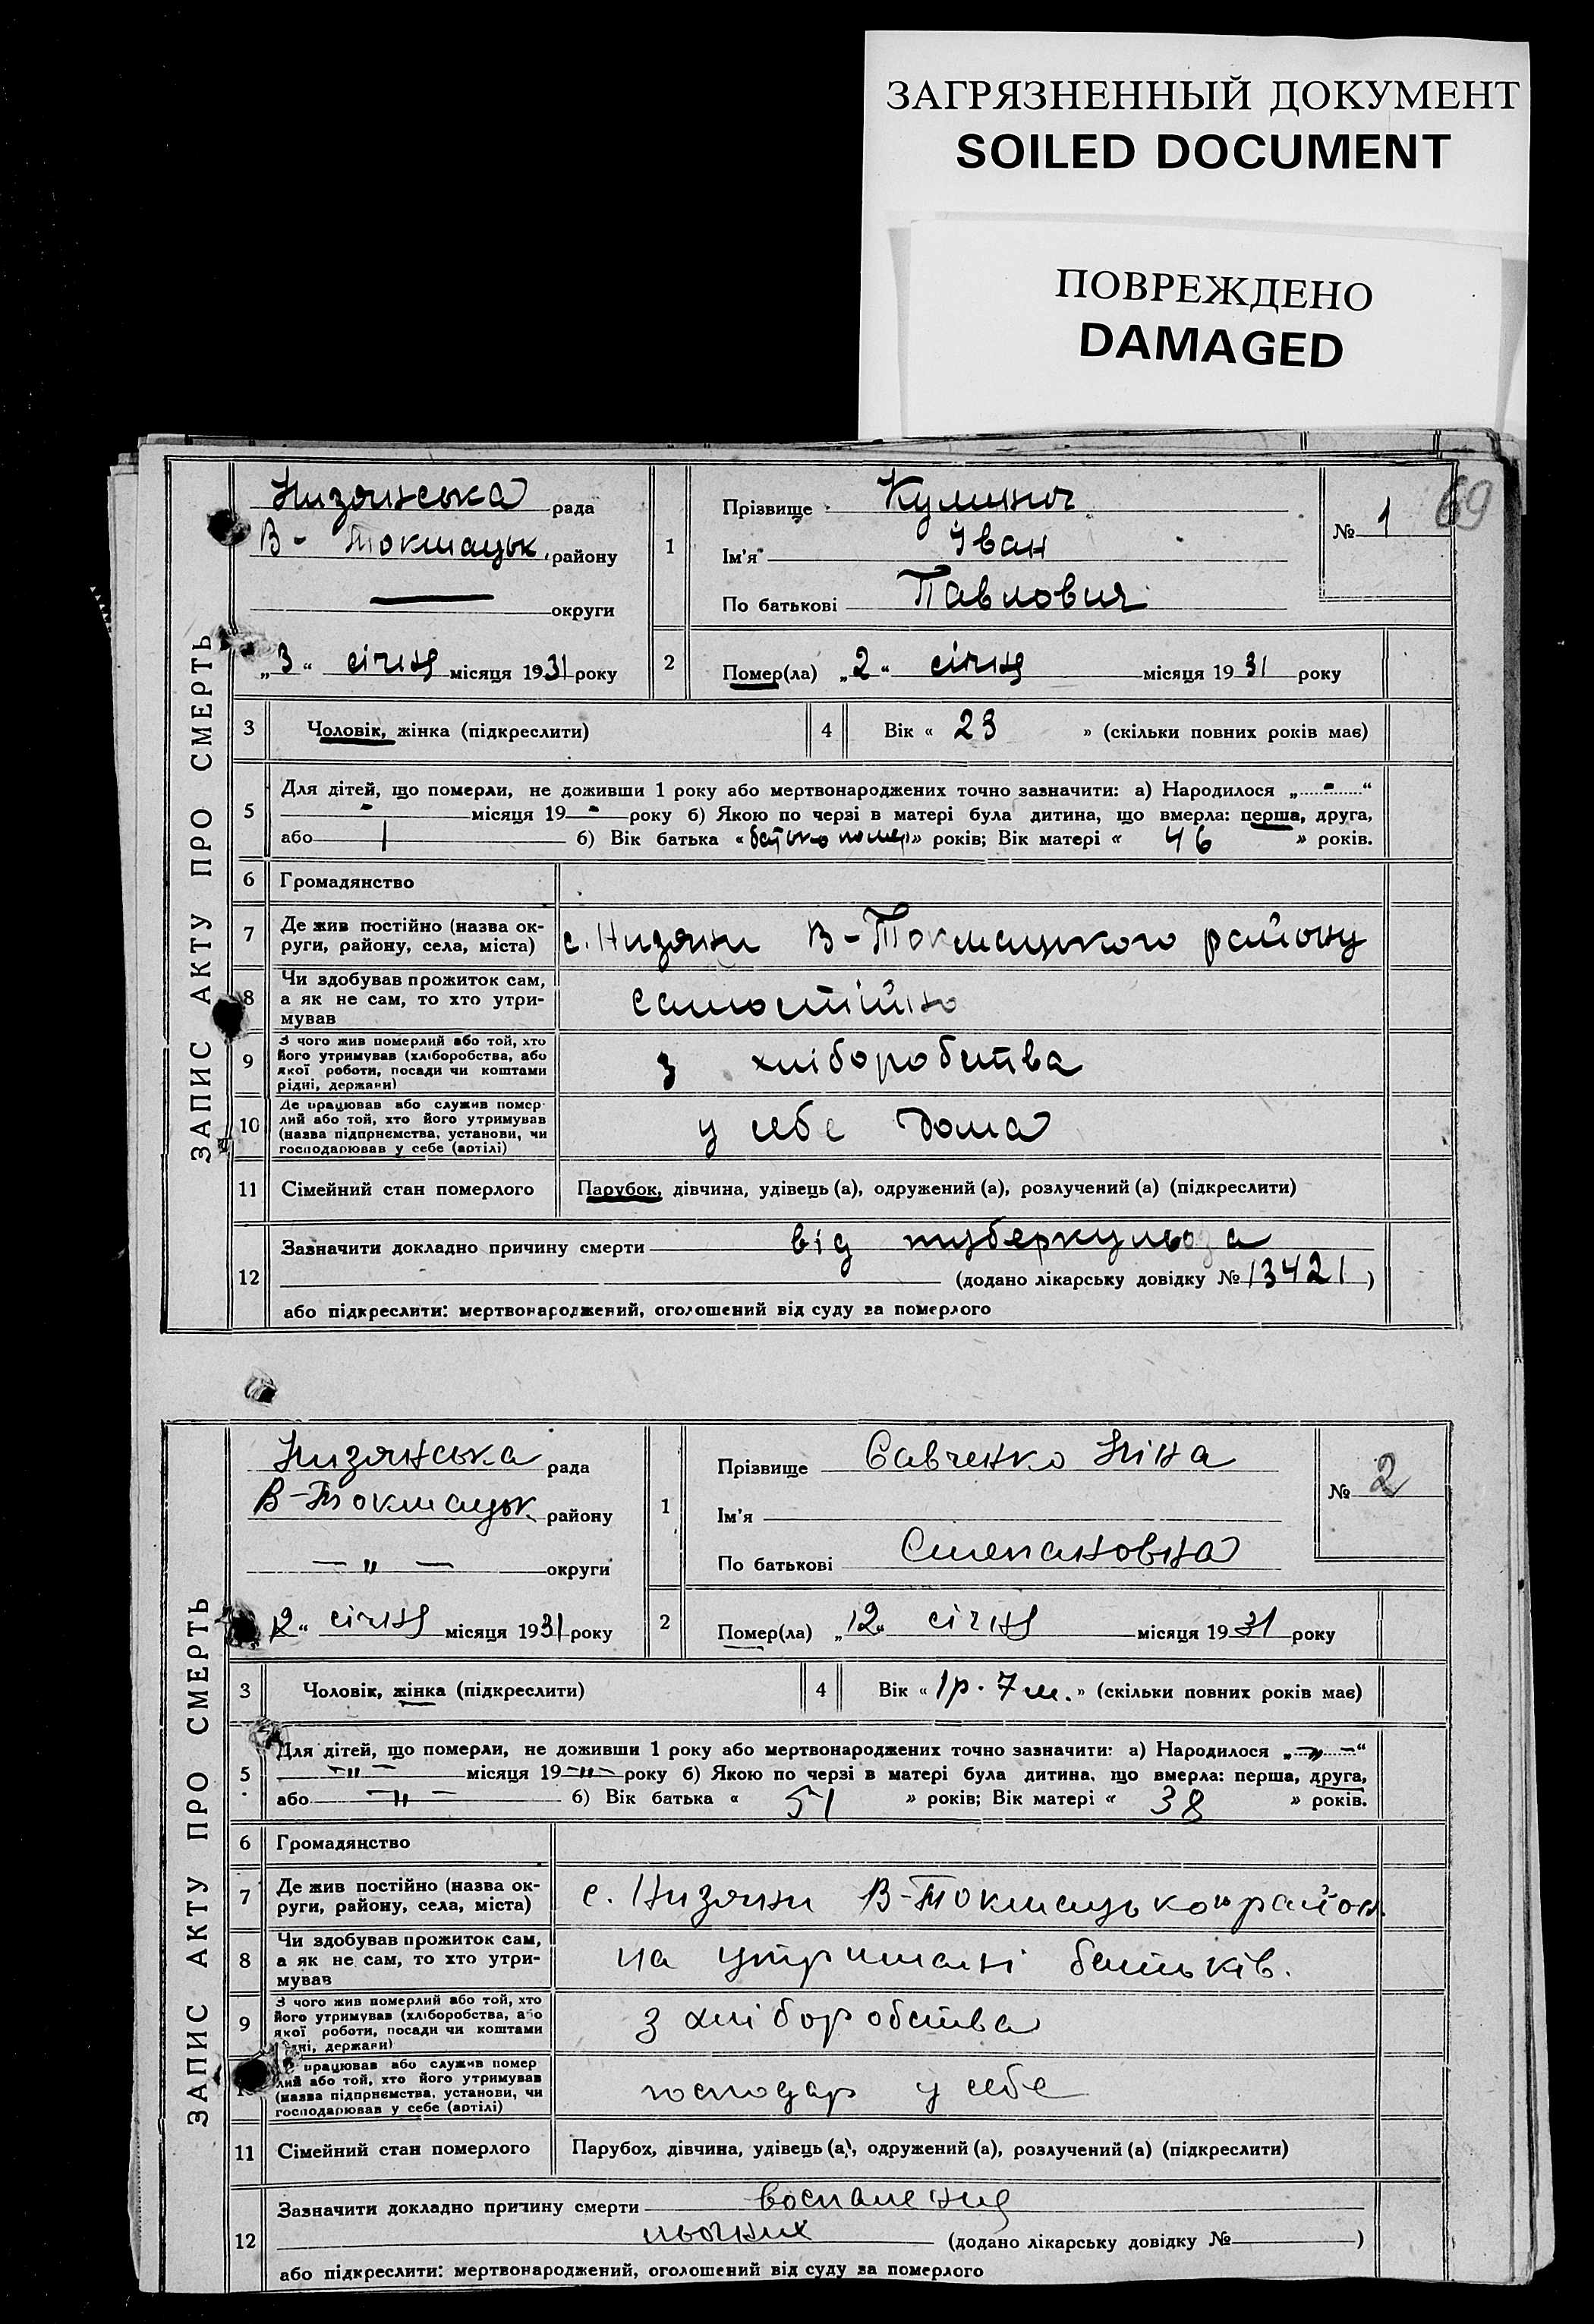 ЗАГРЯЗНЕННЫЙ ДОКУМЕНТ
SOILED DOCUMENT
ПОВРЕЖДЕНО
DAMAGED
69
ЗАПИС АКТУ ПРО СМЕРТЬ
Низянська рада
В-Токмацьк. району
— округи
„3“ січня місяця 1931 року
1
Прізвище Кулинич
Ім'я Іван
По батькові Павлович
№ 1
2
Помер(ла) „2“ січня місяця 1931 року
3 Чоловік, жінка (підкреслити)
4 Вік « 23 » (скільки повних років має)
5
Для дітей, що померли, не доживши 1 року або мертвонароджених точно зазначити: а) Народилося „-“
- місяця 19 - року б) Якою по черзі в матері була дитина, що вмерла: перша, друга,
або 1 б) Вік батька «батько помер» років; Вік матері « 46 » років.
6 Громадянство
7 Де жив постійно (назва ок-
руги, району, села, міста)
с. Низяни В-Токмацького району
8 Чи здобував прожиток сам,
а як не сам, то хто утри-
мував
самостійно
9 З чого жив померлий або той, хто
його утримував (хліборобства, або
якої роботи, посади чи коштами
рідні, держави)
з хліборобства
10 Де працював або служив помер-
лий або той, хто його утримував
(назва підприємства, установи, чи
господарював у себе (артілі)
у себе дома
11 Сімейний стан померлого
Парубок, дівчина, удівець (а), одружений (а), розлучений (а) (підкреслити)
12
Зазначити докладно причину смерти від туберкульоза
(додано лікарську довідку № 13421)
або підкреслити: мертвонароджений, оголошений від суду за померлого
ЗАПИС АКТУ ПРО СМЕРТЬ
Низянська рада
В-Токмацьк. району
— „ — округи
12“ січня місяця 1931 року
1
Прізвище Савченко Ніна
Ім'я
По батькові Степановна
№ 2
2
Помер(ла) „12“ січня місяця 1931 року
3 Чоловік, жінка (підкреслити)
4 Вік « 1р. 7м. » (скільки повних років має)
5
Для дітей, що померли, не доживши 1 року або мертвонароджених точно зазначити: а) Народилося „-„-“
-„- місяця 19-„- року б) Якою по черзі в матері була дитина, що вмерла: перша, друга,
або -„- б) Вік батька « 51 » років; Вік матері « 38 » років.
6 Громадянство
7 Де жив постійно (назва ок-
руги, району, села, міста)
с. Низяни В-Токмацького район.
8 Чи здобував прожиток сам,
а як не сам, то хто утри-
мував
на утримані батьків.
9 З чого жив померлий або той, хто
його утримував (хліборобства, або
якої роботи, посади чи коштами
рідні, держави)
з хліборобства
працював або служив помер
лий або той, хто його утримував
(назва підприємства, установи, чи
господарював у себе (артілі)
господар у себе
11 Сімейний стан померлого
Парубок, дівчина, удівець (а), одружений (а), розлучений (а) (підкреслити)
12
Зазначити докладно причину смерти воспаления
льогких (додано лікарську довідку № )
або підкреслити: мертвонароджений, оголошений від суду за померлого